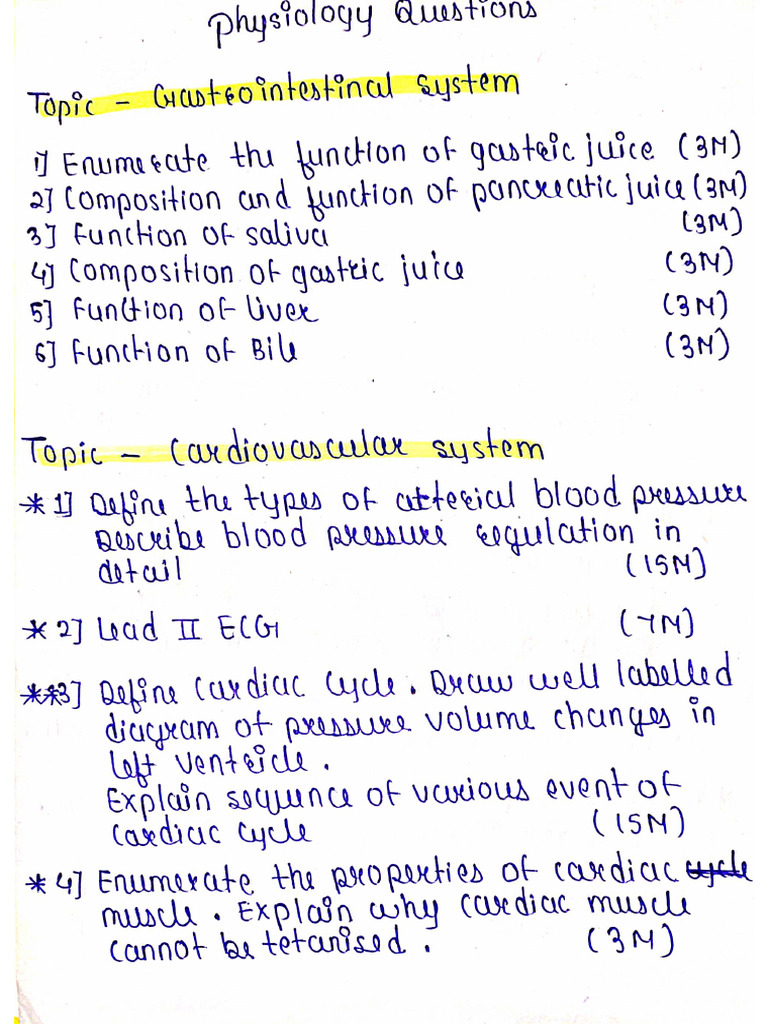 Physiology Questions
Topic - Gastrointestinal system
1] Enumerate the function of gastric juice (3M)
2] Composition and function of pancreatic juice (3M)
3] Function of saliva (3M)
4] Composition of gastric juice (3M)
5] Function of liver (3M)
6] Function of Bile (3M)
Topic - Cardiovascular system
*1] Define the types of arterial blood pressure
Describe blood pressure regulation in
detail (15M)
*2] Lead II ECG (7M)
**3] Define cardiac cycle. Draw well labelled
diagram of pressure volume changes in
left ventricle.
Explain sequence of various event of
cardiac cycle (15M)
*4] Enumerate the properties of cardiac cycle
muscle. Explain why cardiac muscle
cannot be tetanised. (3M)